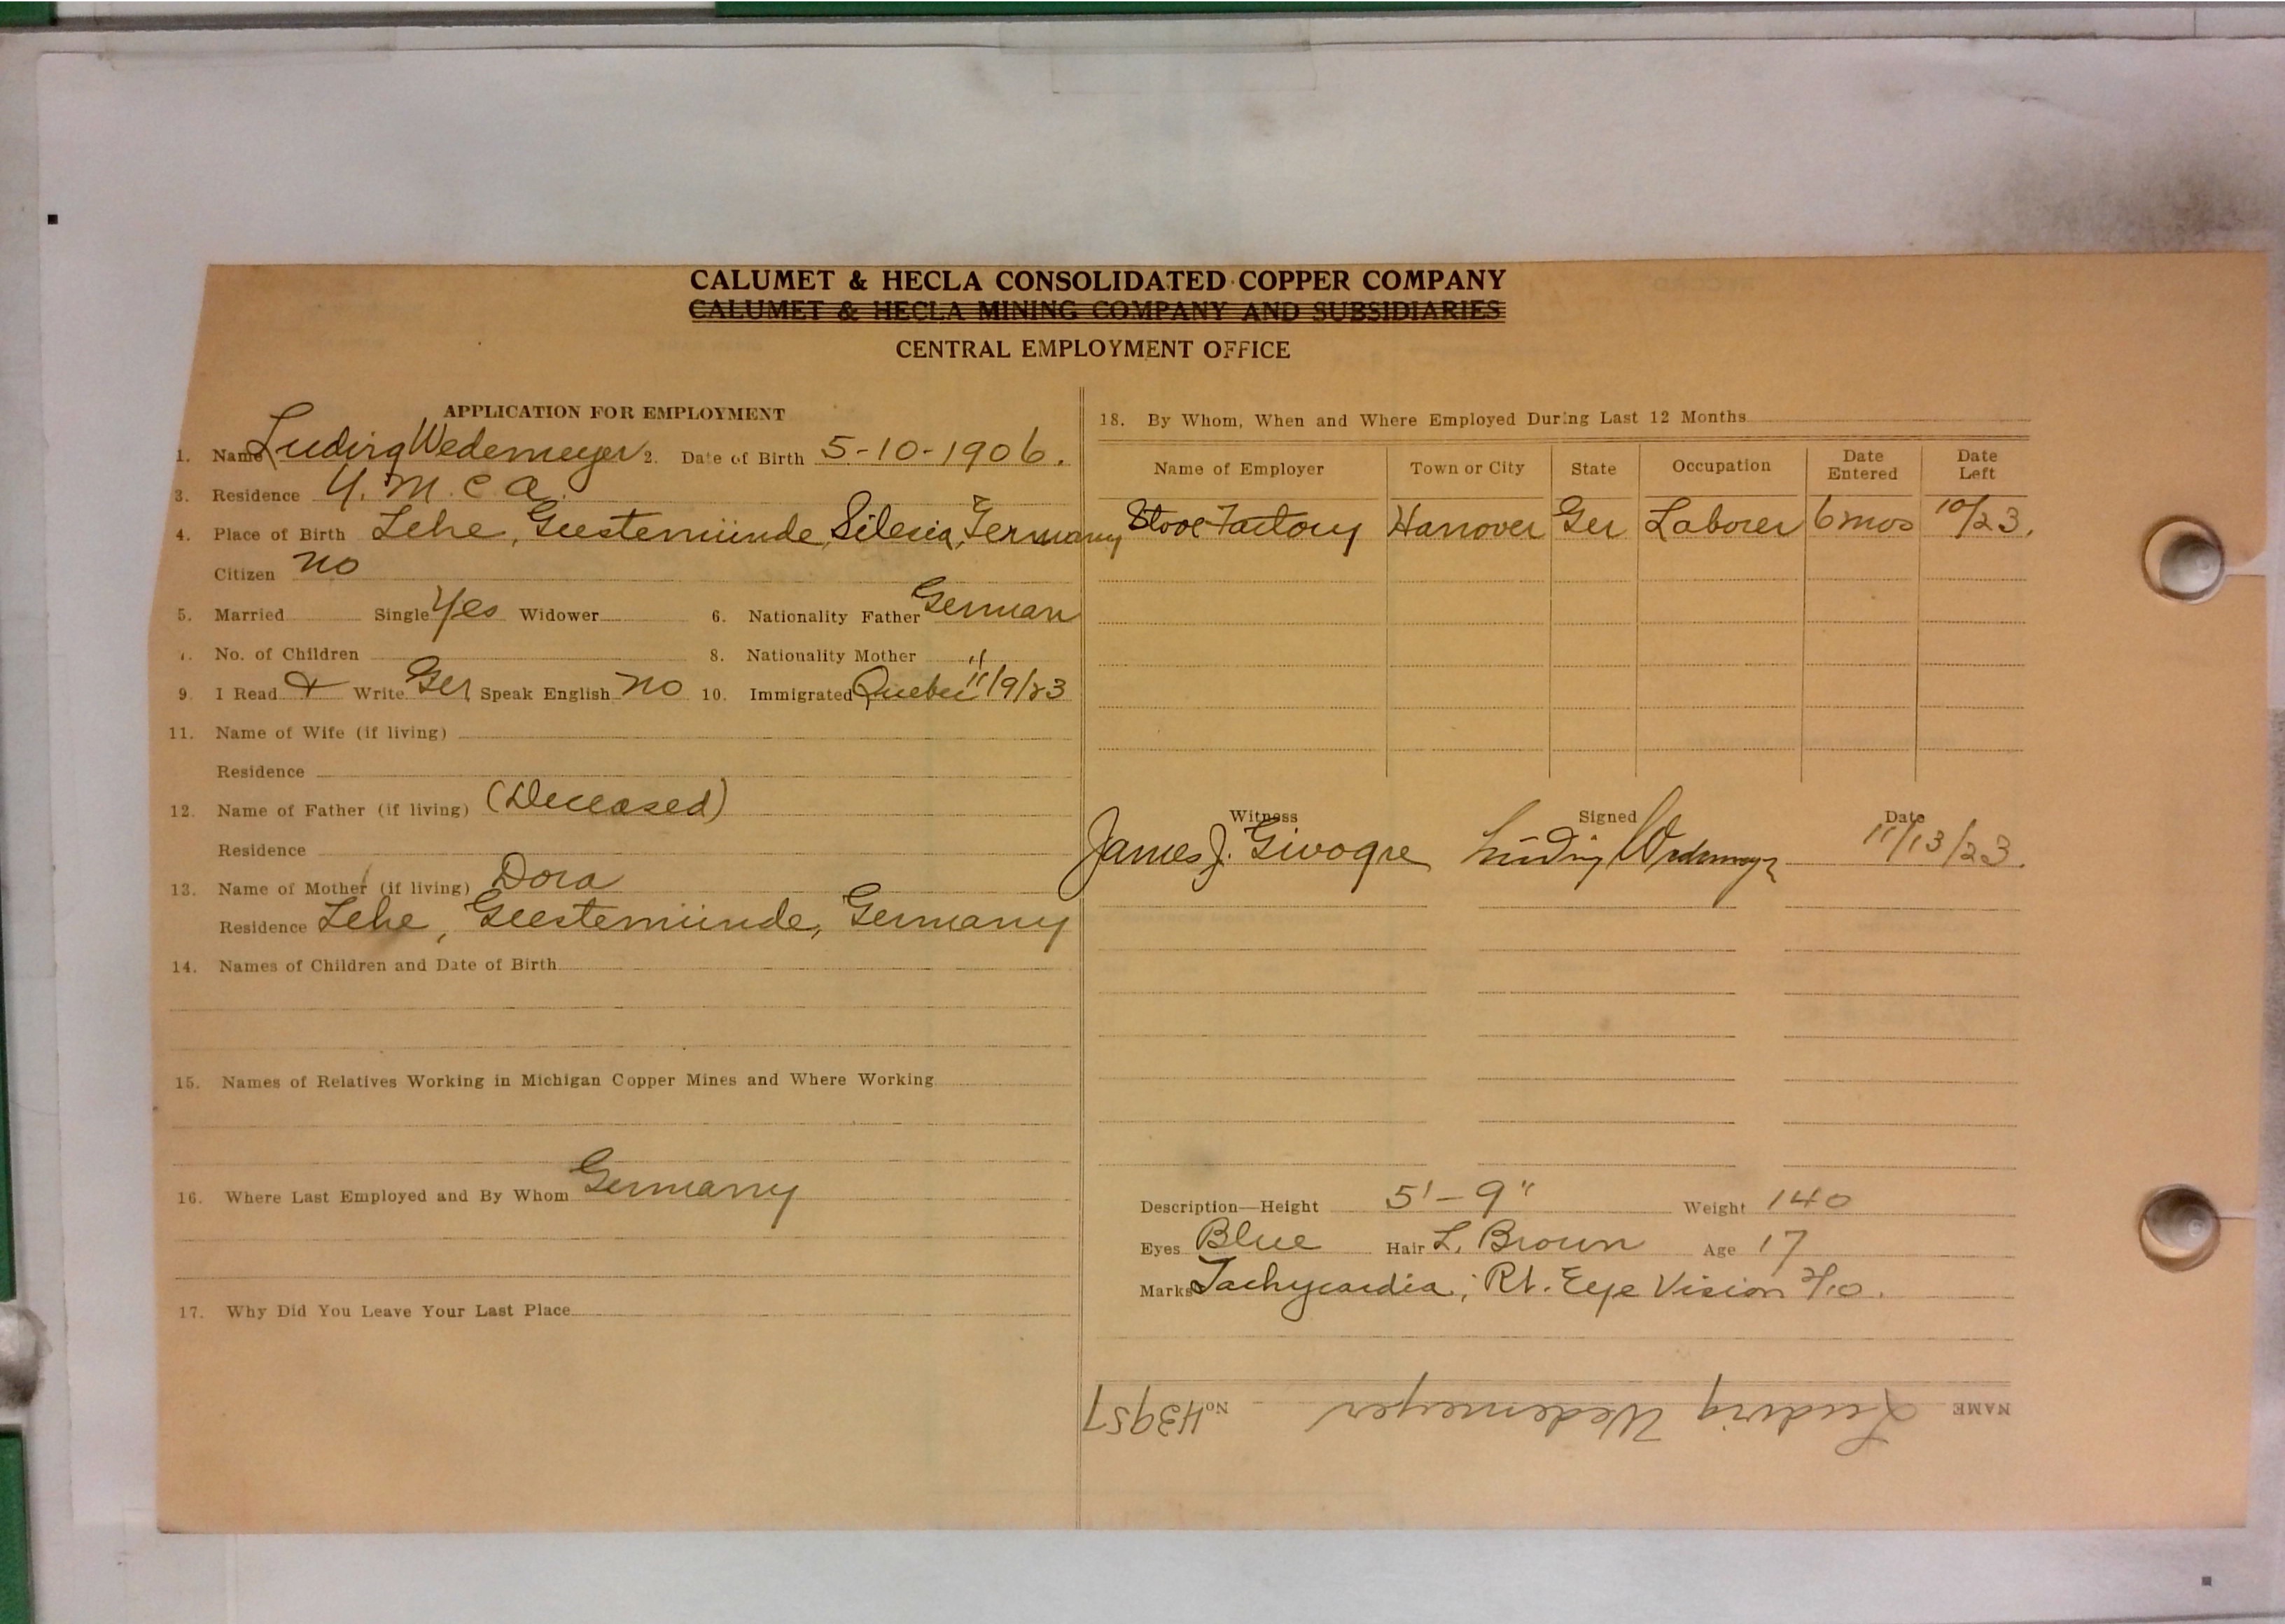 CALUMET & HECLA CONSOLIDATED COPPER COMPANY
CALUMET & HECLA MINING COMPANY AND SUBSIDIARIES
CENTRAL EMPLOYMENT OFFICE
APPLICATION FOR EMPLOYMENT
1. Name Ludwig Wedemeyer 2. Date of Birth 5-10-1906.
3. Residence Y.M.C.A.
4. Place of Birth Lehe, Geestemünde, Silesia, Germany
Citizen no
5. Married Single Yes Widower 6. Nationality Father German
7. No. of Children 8. Nationality Mother "
9. I Read & Write Ger Speak English no 10. Immigrated Quebec 11/9/23
11. Name of Wife (if living)
Residence
12. Name of Father (if living) (Deceased)
Residence
13. Name of Mother (if living) Dora
Residence Lehe, Geestemünde, Germany
14. Names of Children and Date of Birth
15. Names of Relatives Working in Michigan Copper Mines and Where Working
16. Where Last Employed and By Whom Germany
17. Why Did You Leave Your Last Place
18. By Whom, When and Where Employed During Last 12 Months
Name of Employer Town or City State Occupation Date Entered Date Left
Stove Factory Hanover Ger Laborer 6 mos 10/23.
Witness Signed Date
James J. Givogre Ludwig Wedemeyer 11/13/23.
Description—Height 5'-9" Weight 140
Eyes Blue Hair L. Brown Age 17
Marks Tachycardia; Rt. Eye Vision 2/10.
NAME Ludwig Wedemeyer No. 43957